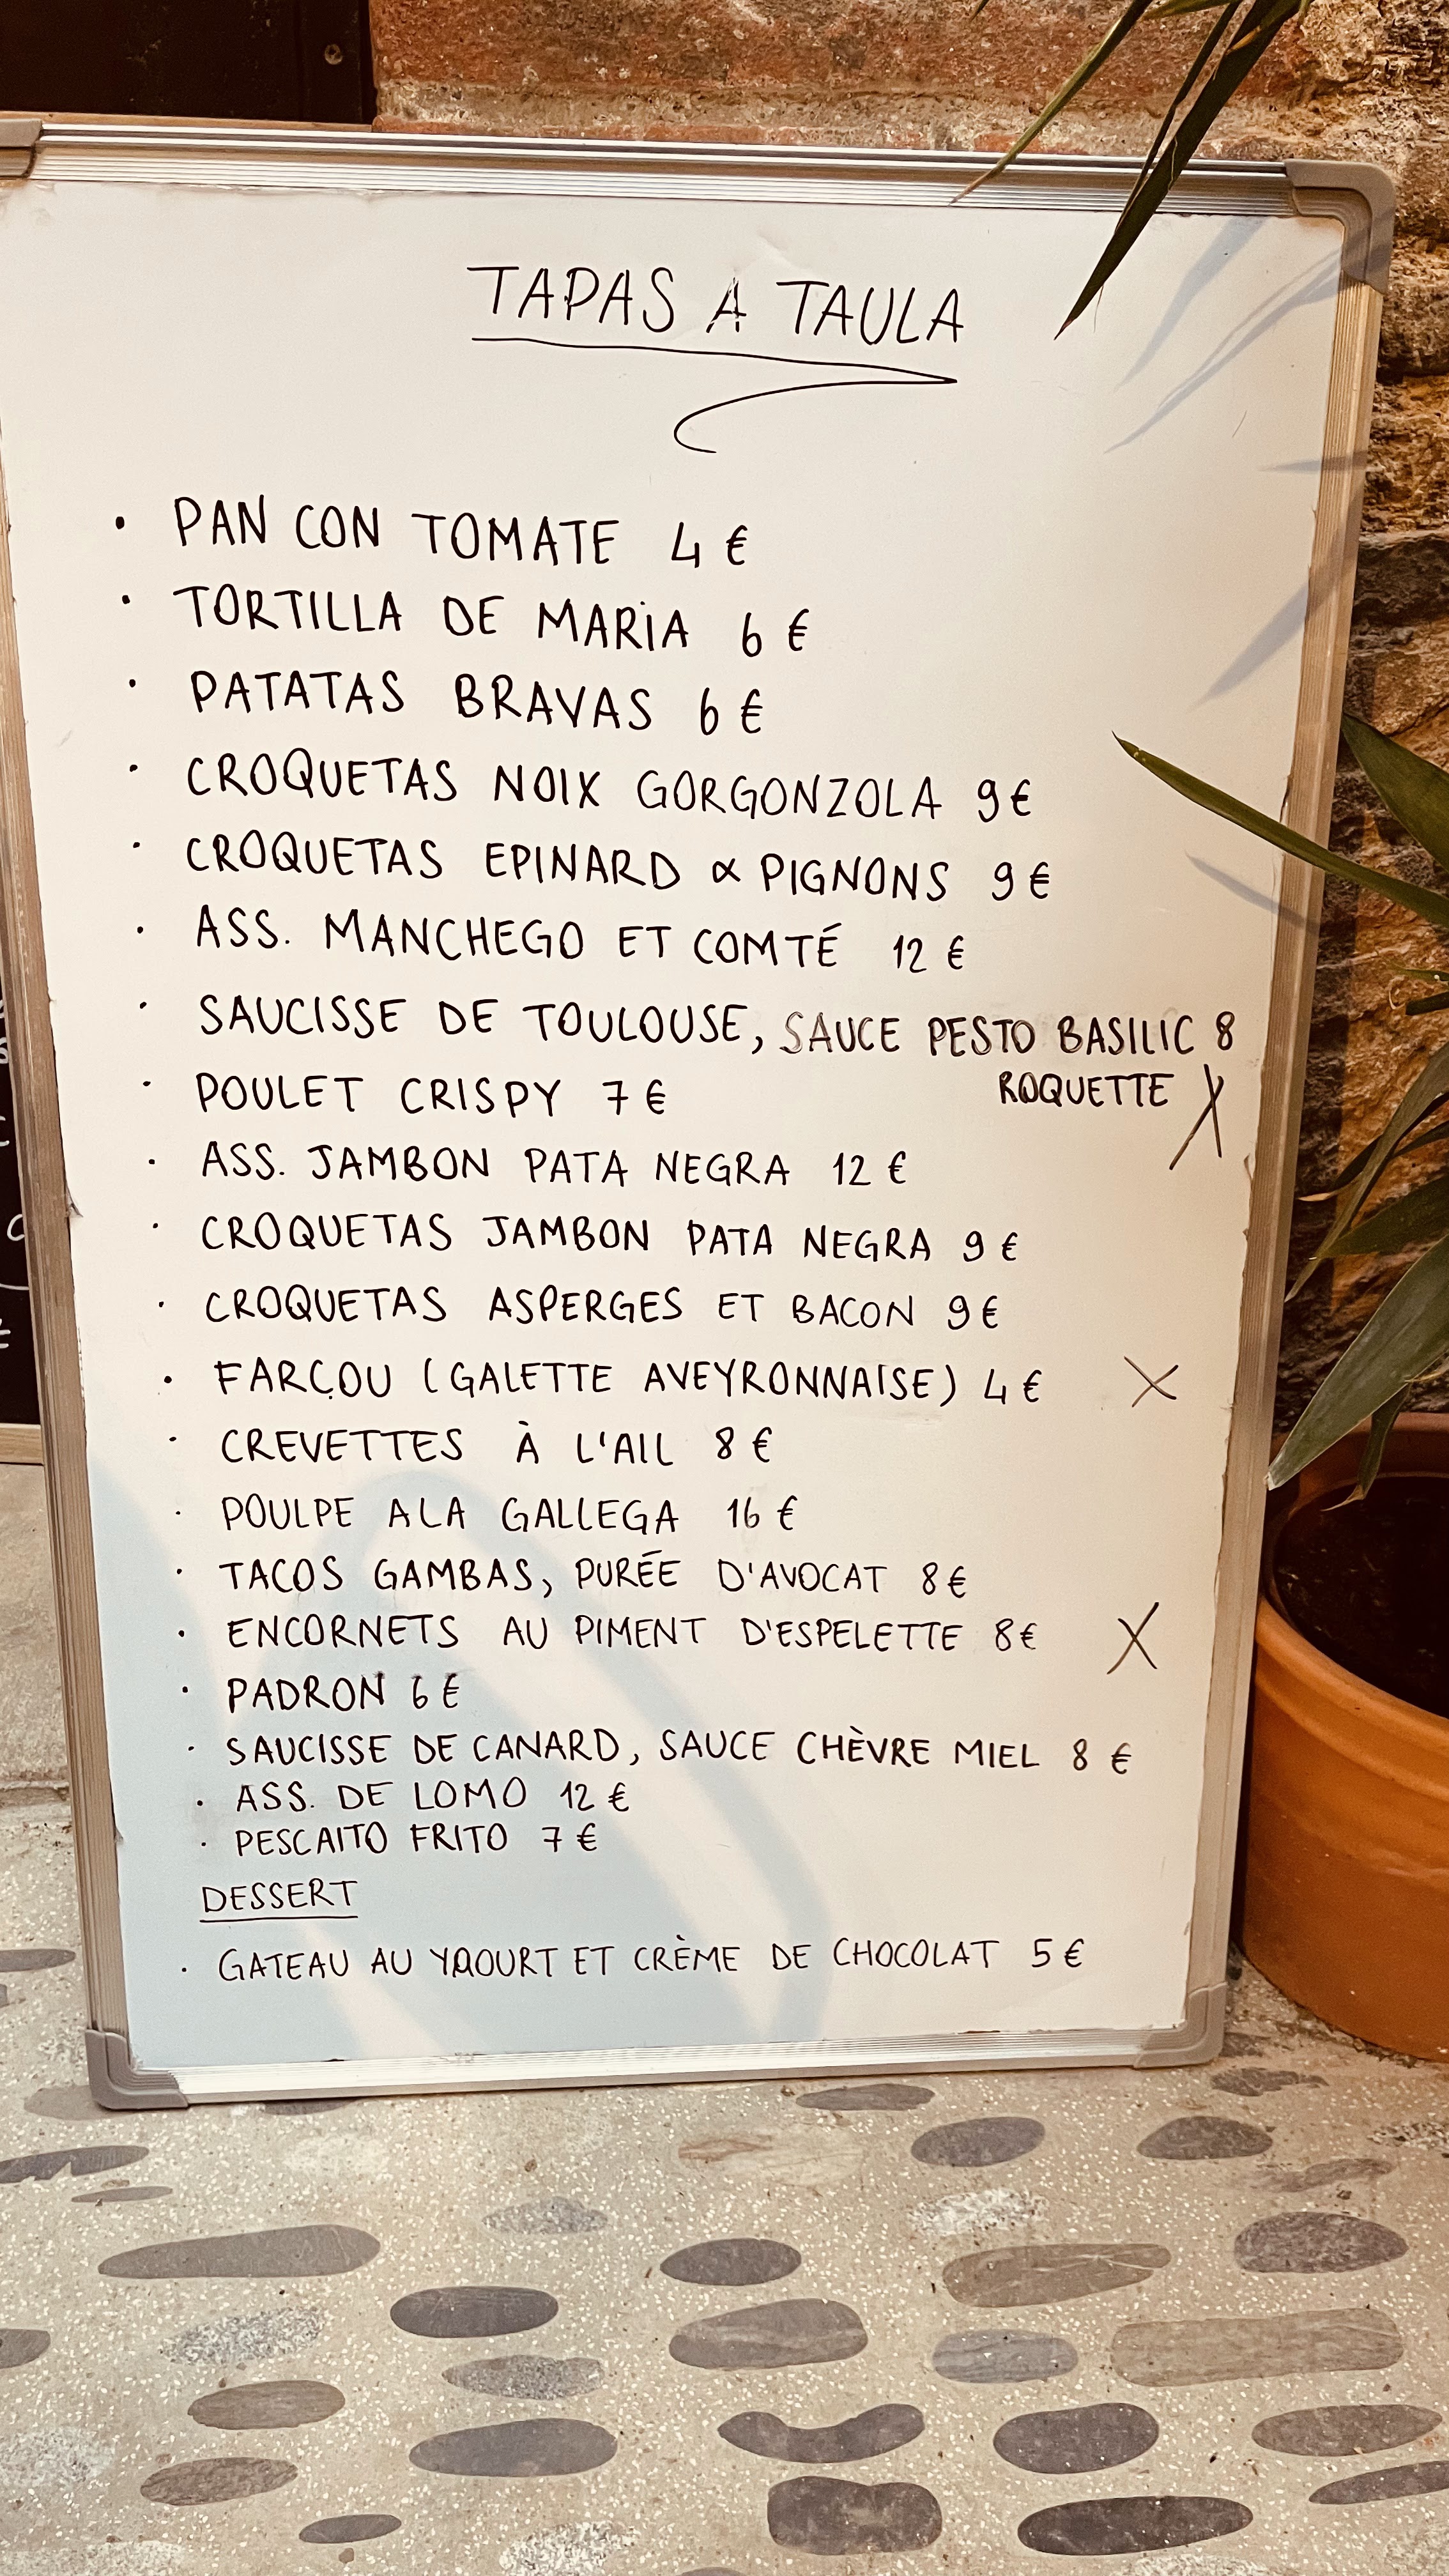 TAPAS A TAULA
· PAN CON TOMATE 4 €
· TORTILLA DE MARiA 6 €
· PATATAS BRAVAS 6 €
· CROQUETAS NOIX GORGONZOLA 9 €
· CROQUETAS EPINARD & PIGNONS 9 €
· ASS. MANCHEGO ET COMTÉ 12 €
· SAUCISSE DE TOULOUSE, SAUCE PESTO BASILIC 8
ROQUETTE X
· POULET CRISPY 7 €
· ASS. JAMBON PATA NEGRA 12 €
· CROQUETAS JAMBON PATA NEGRA 9 €
· CROQUETAS ASPERGES ET BACON 9 €
· FARÇOU (GALETTE AVEYRONNAISE) 4 € X
· CREVETTES À L'AIL 8 €
· POULPE A LA GALLEGA 16 €
· TACOS GAMBAS, PURÉE D'AVOCAT 8 €
· ENCORNETS AU PIMENT D'ESPELETTE 8 € X
· PADRON 6 €
· SAUCISSE DE CANARD, SAUCE CHÈVRE MIEL 8 €
· ASS. DE LOMO 12 €
· PESCAITO FRITO 7 €
DESSERT
· GATEAU AU YAOURT ET CRÈME DE CHOCOLAT 5 €